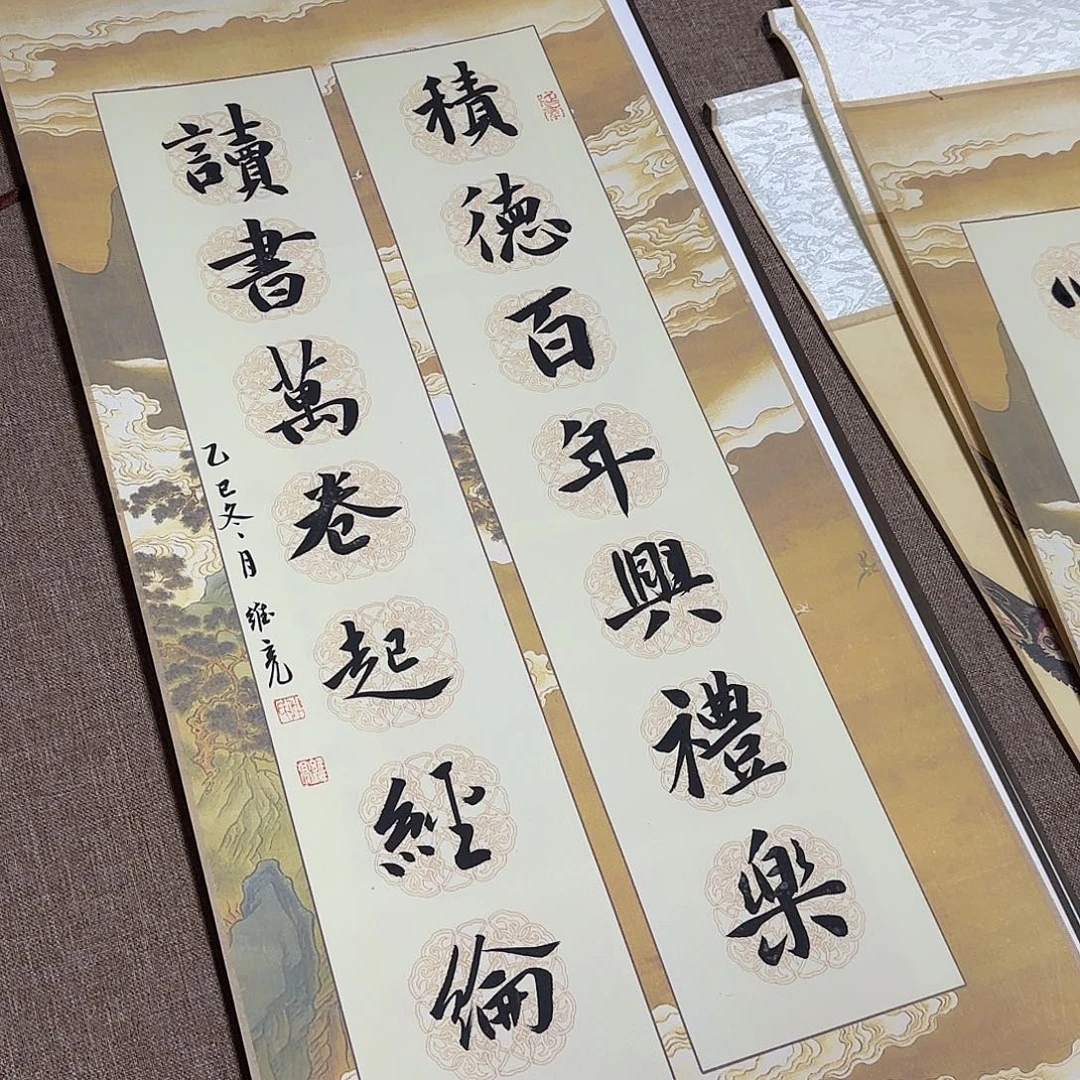 積德百年興禮樂
讀書萬卷起經綸
乙巳冬月
維亮